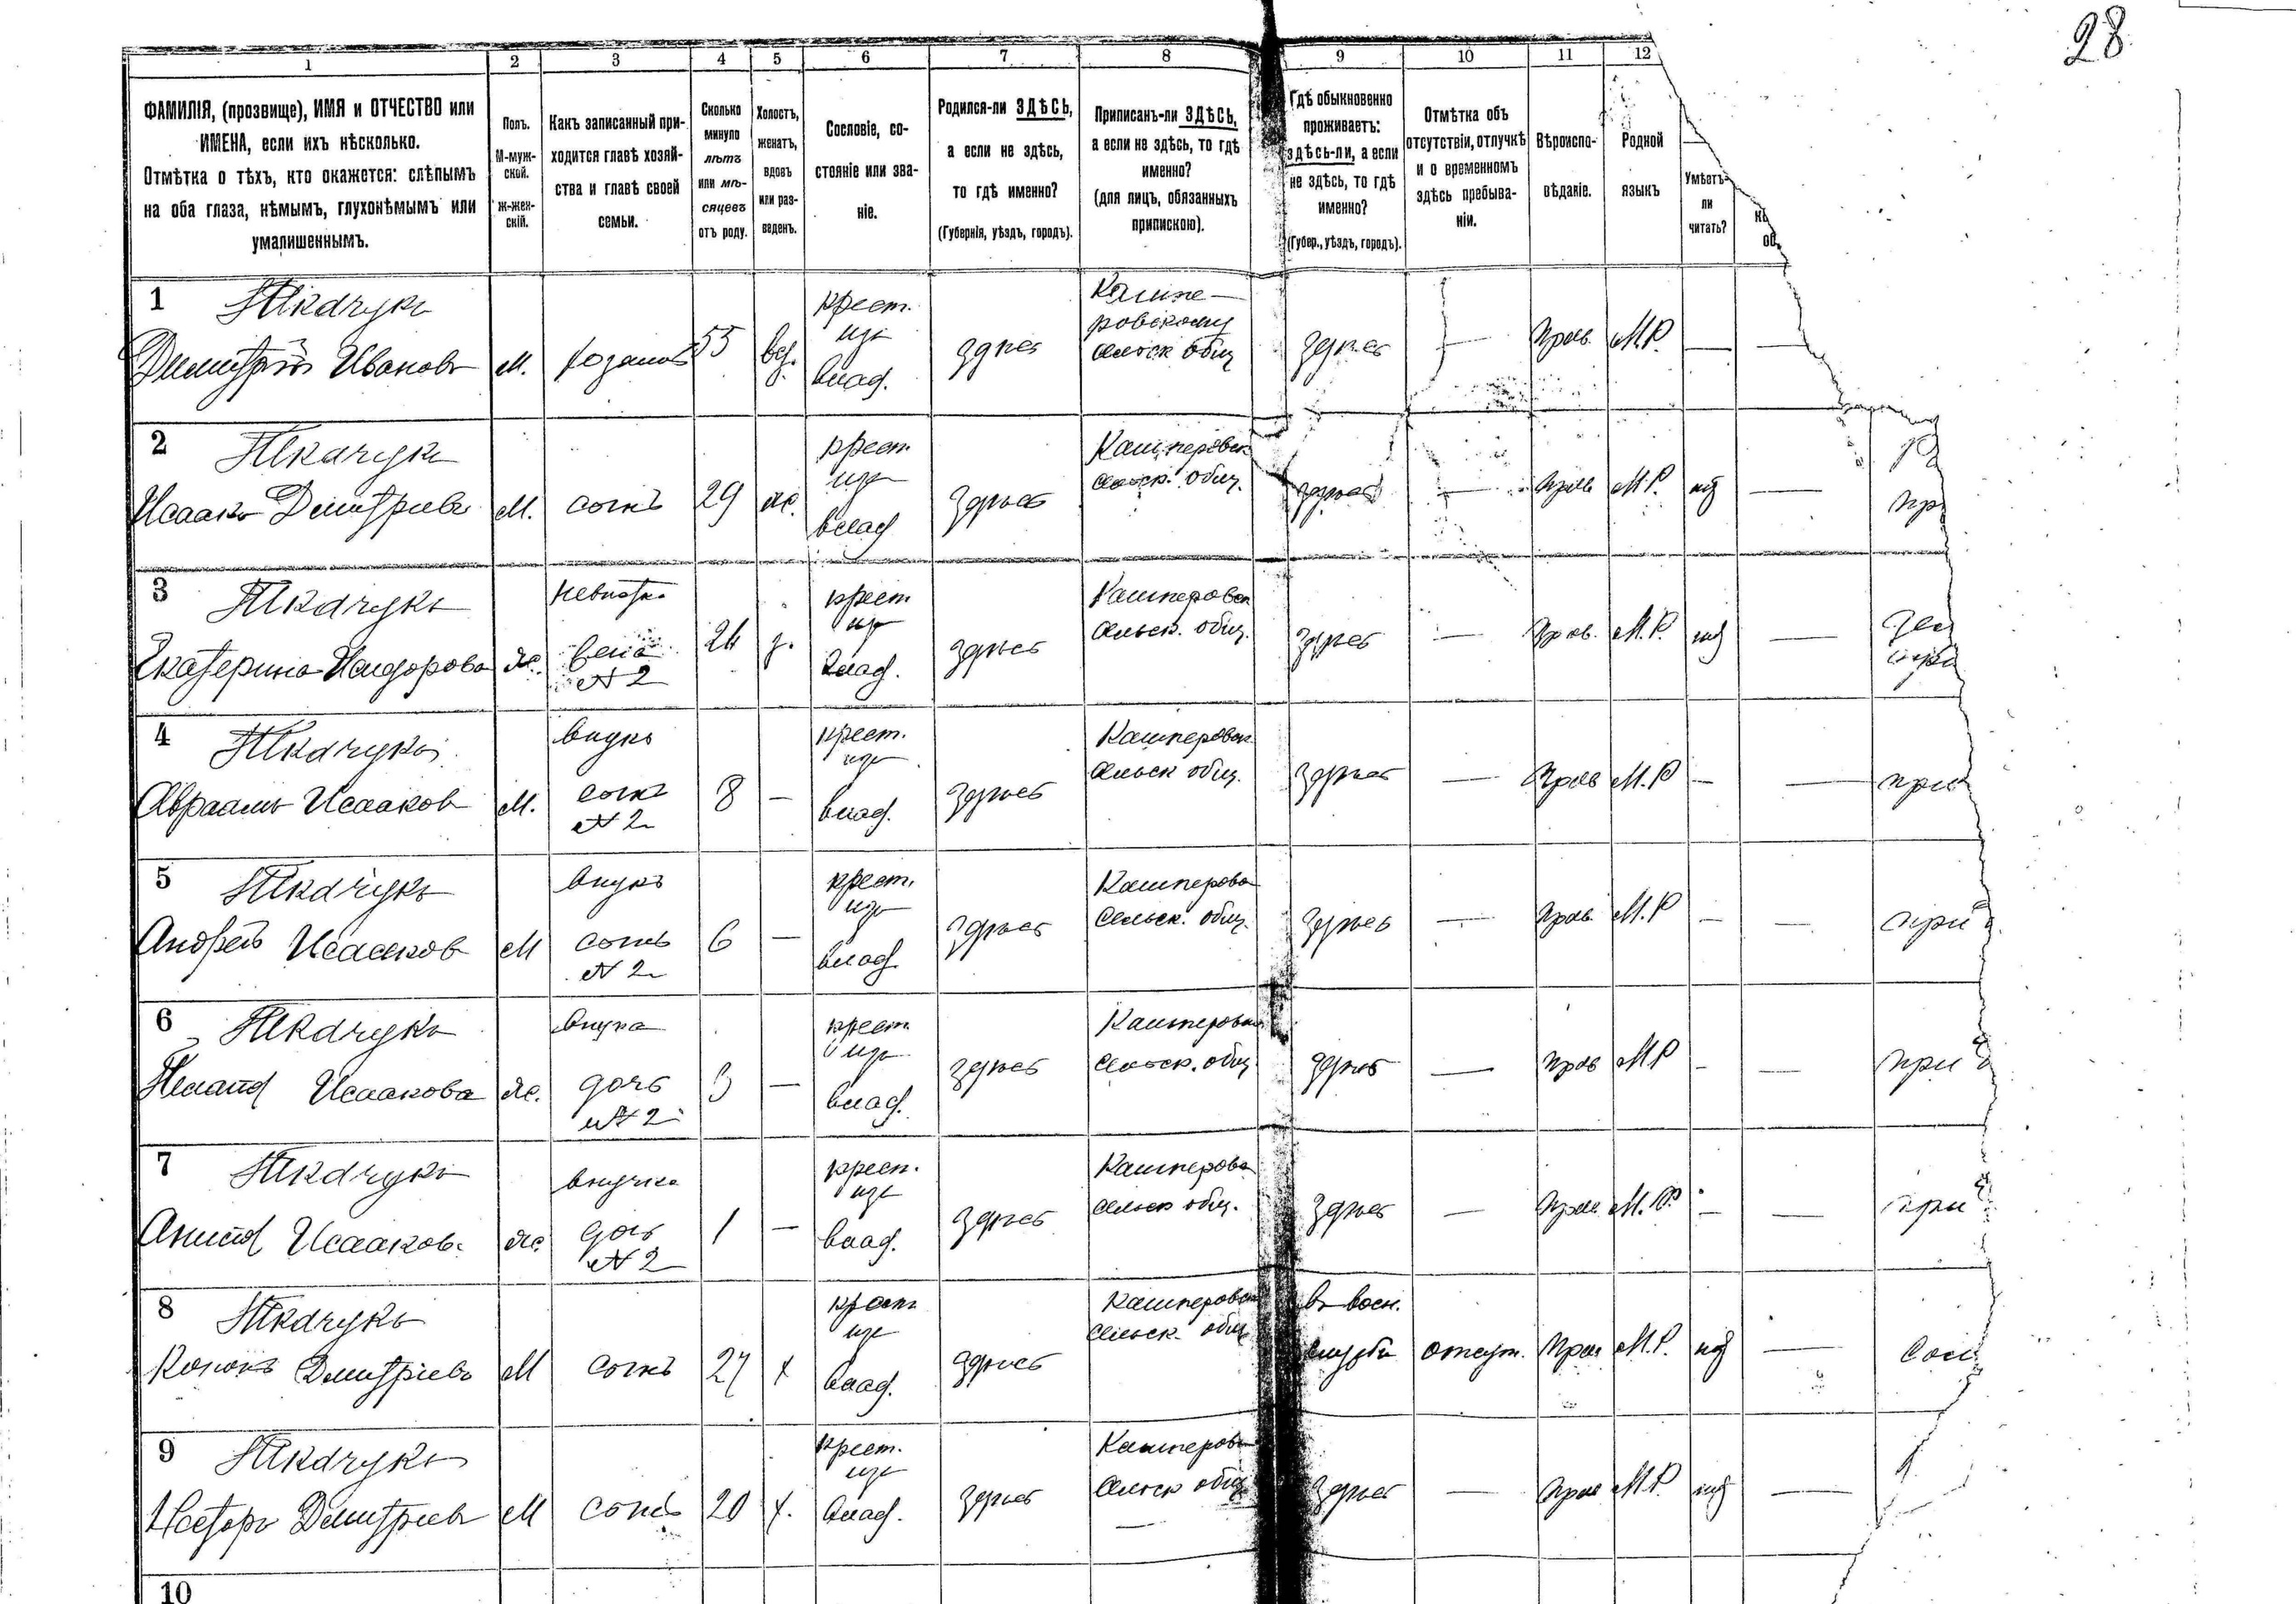 28
1 2 3 4 5 6 7 8 9 10 11 12
ФАМИЛІЯ, (прозвище), ИМЯ и ОТЧЕСТВО или
ИМЕНА, если ихъ нѣсколько.
Отмѣтка о тѣхъ, кто окажется: слѣпымъ
на оба глаза, нѣмымъ, глухонѣмымъ или
умалишеннымъ.
Полъ.
М-муж-
ской.
Ж-жен-
скій.
Какъ записанный при-
ходится главѣ хозяй-
ства и главѣ своей
семьи.
Сколько
минуло
лѣтъ
или мѣ-
сяцевъ
отъ роду.
Холостъ,
женатъ,
вдовъ
или раз-
веденъ.
Сословіе, со-
стояніе или зва-
ніе.
Родился-ли ЗДѢСЬ,
а если не здѣсь,
то гдѣ именно?
(Губернія, уѣздъ, городъ).
Приписанъ-ли ЗДѢСЬ,
а если не здѣсь, то гдѣ
именно?
(для лицъ, обязанныхъ
припискою).
Гдѣ обыкновенно
проживаетъ:
здѣсь-ли, а если
не здѣсь, то гдѣ
именно?
(Губер., уѣздъ, городъ).
Отмѣтка объ
отсутствіи, отлучкѣ
и о временномъ
здѣсь пребыва-
ніи.
Вѣроиспо-
вѣданіе.
Родной
языкъ
Умѣетъ-
ли
читать?
1 Ткачукъ крест. Кашпе-
изъ ровскому
Дмитрій Ивановъ М. хозяинъ 55 вд. влад. здѣсь сельск общ здѣсь — Прав. М.Р. — —
2 Ткачукъ крест. Кашперовск
изъ сельск. общ.
Исаакъ Дмитріевъ М. сынъ 29 ж. влад здѣсь здѣсь — Прав М.Р. —
3 Ткачукъ невѣстка крест Кашперовск
изъ сельск. общ.
Екатерина Исидорова ж. 24 з. влад. здѣсь здѣсь — Прав. М.Р. —
№ 2
4 Ткачукъ внукъ крест. Кашперовск
изъ сельск общ.
Авраамъ Исааков М. сынъ 8 — влад. здѣсь здѣсь — Прав М.Р — — при
№ 2
5 Ткачукъ внукъ крест. Кашперовс
изъ сельск. общ.
Андрей Исааков М сынъ 6 — влад здѣсь здѣсь — Прав М.Р — — при
№ 2
6 Ткачукъ внука крест Кашперовск
изъ сельск. общ
Исаакова ж. дочь 3 — влад. здѣсь здѣсь — Прав М.Р — — при
№ 2
7 Ткачукъ внучка крест. Кашперовс
изъ сельск общ.
Исааков. ж. дочь 1 — влад. здѣсь здѣсь — Прав. М.Р. — — при
№ 2
8 Ткачукъ крест Кашперовск въ воен.
изъ сельск. общ
Кононъ Дмитріевъ М сынъ 27 х влад. здѣсь службѣ отсут. Прав М.Р. —
9 Ткачукъ крест. Кашперовс
изъ сельск общ
Несторъ Дмитріевъ М сынъ 20 х. влад. здѣсь — здѣсь — Прав М.Р. —
10